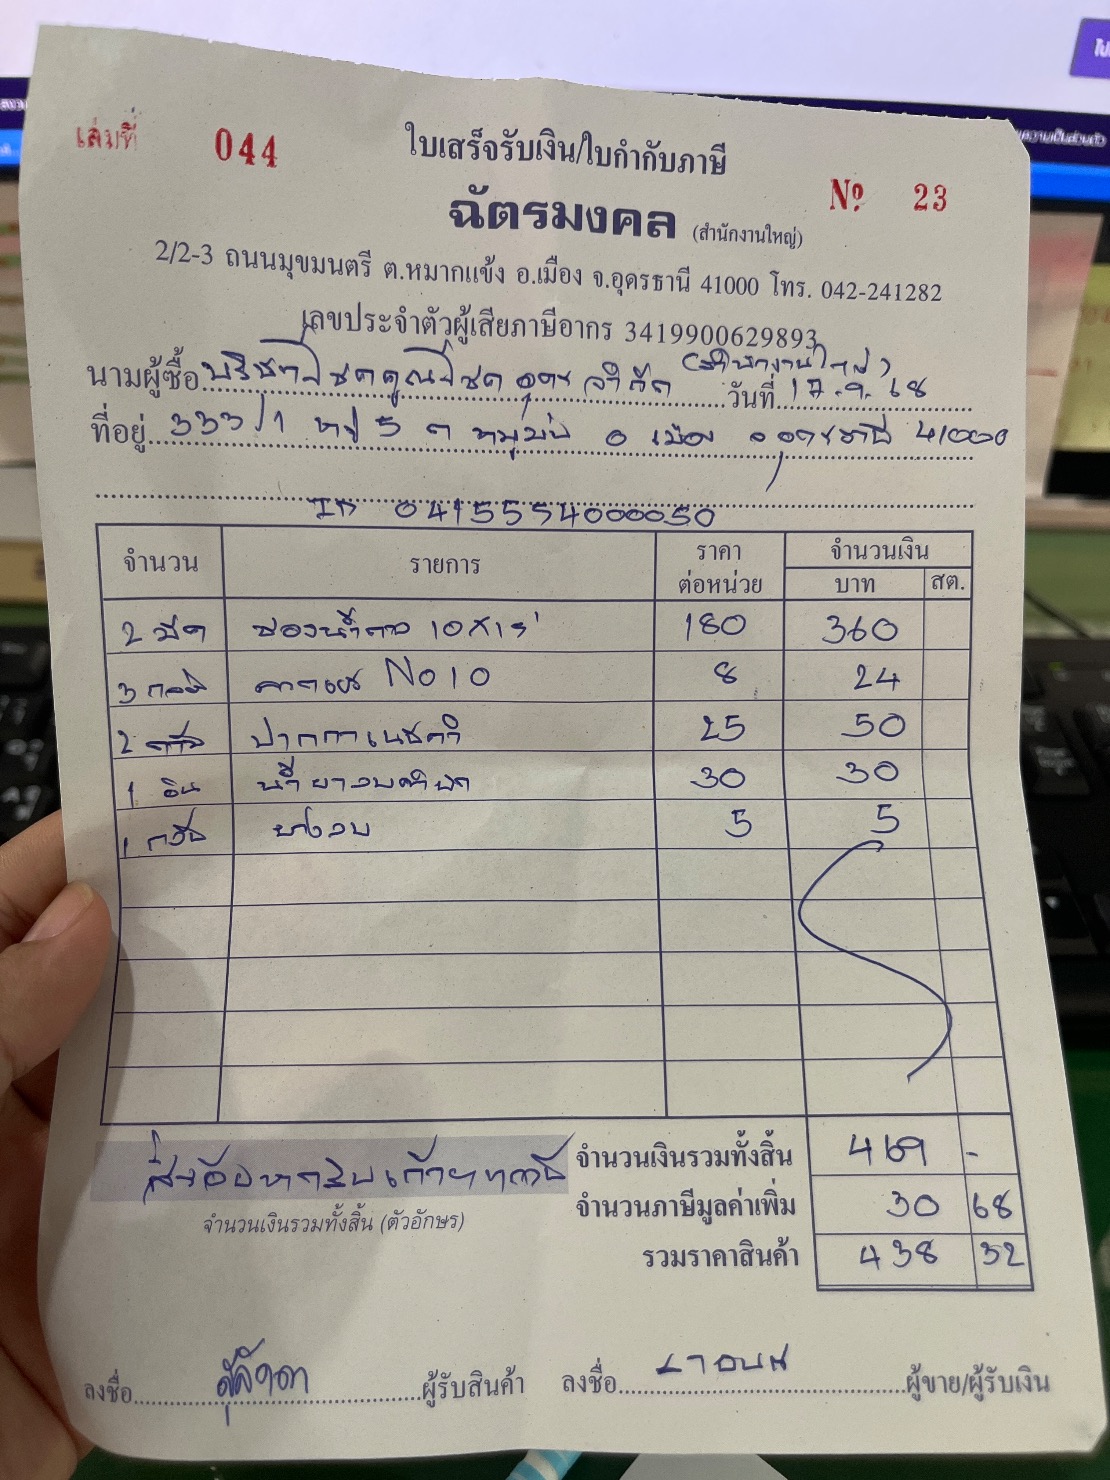 เล่มที่ 044
ใบเสร็จรับเงิน/ใบกำกับภาษี
№ 23
ฉัตรมงคล (สำนักงานใหญ่)
2/2-3 ถนนมุขมนตรี ต.หมากแข้ง อ.เมือง จ.อุดรธานี 41000 โทร. 042-241282
เลขประจำตัวผู้เสียภาษีอากร 3419900629893
(สำนักงานใหญ่)
นามผู้ซื้อ บริษัท โชคคูณโชค อุดร จำกัด วันที่ 17.9.68
ที่อยู่ 333/1 หมู่ 5 ต หมูม่น อ เมือง จ อุดรธานี 41000
ID 0415554000050
จำนวน รายการ ราคาต่อหน่วย จำนวนเงิน
บาท สต.
2 ซองน้ำตาล 180 360
3 กล่อง No 10 8 24
2 ปากกาเมจิก 25 50
1 อัน น้ำยาลบคำผิด 30 30
1 ยางลบ 5 5
จำนวนเงินรวมทั้งสิ้น 469 -
สี่ร้อยหกสิบเก้าบาทถ้วน
จำนวนภาษีมูลค่าเพิ่ม 30 68
จำนวนเงินรวมทั้งสิ้น (ตัวอักษร)
รวมราคาสินค้า 438 32
ลงชื่อ ผู้รับสินค้า ลงชื่อ ผู้ขาย/ผู้รับเงิน